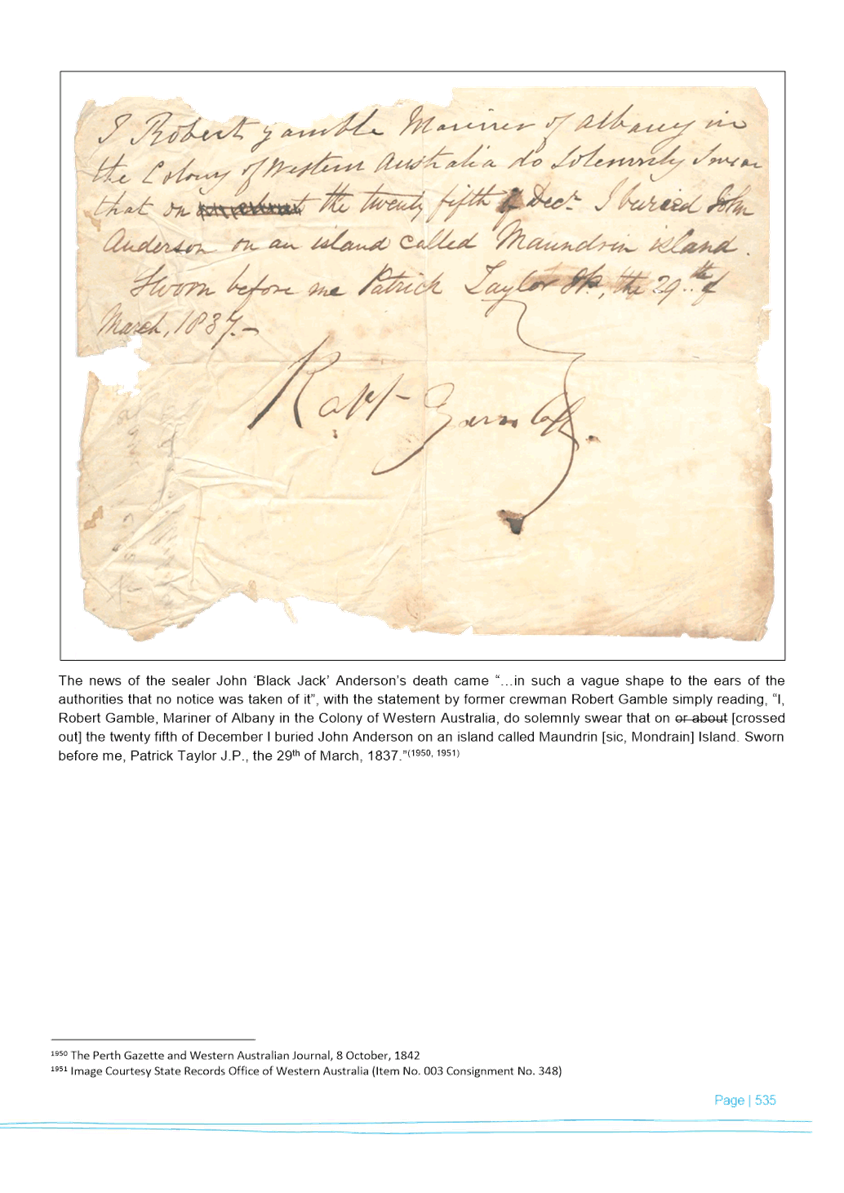 I Robert Gamble Mariner of Albany in
the Colony of Western Australia do Solemnly Swear
that on the twenty fifth of Decr I buried John
Anderson on an island called Maundrin island.
Sworn before me Patrick Taylor JP, the 29th of
March, 1837.—
The news of the sealer John ‘Black Jack’ Anderson’s death came “…in such a vague shape to the ears of the
authorities that no notice was taken of it”, with the statement by former crewman Robert Gamble simply reading, “I,
Robert Gamble, Mariner of Albany in the Colony of Western Australia, do solemnly swear that on or about [crossed
out] the twenty fifth of December I buried John Anderson on an island called Maundrin [sic, Mondrain] Island. Sworn
before me, Patrick Taylor J.P., the 29th of March, 1837.”(1950, 1951)
1950 The Perth Gazette and Western Australian Journal, 8 October, 1842
1951 Image Courtesy State Records Office of Western Australia (Item No. 003 Consignment No. 348)
Page | 535